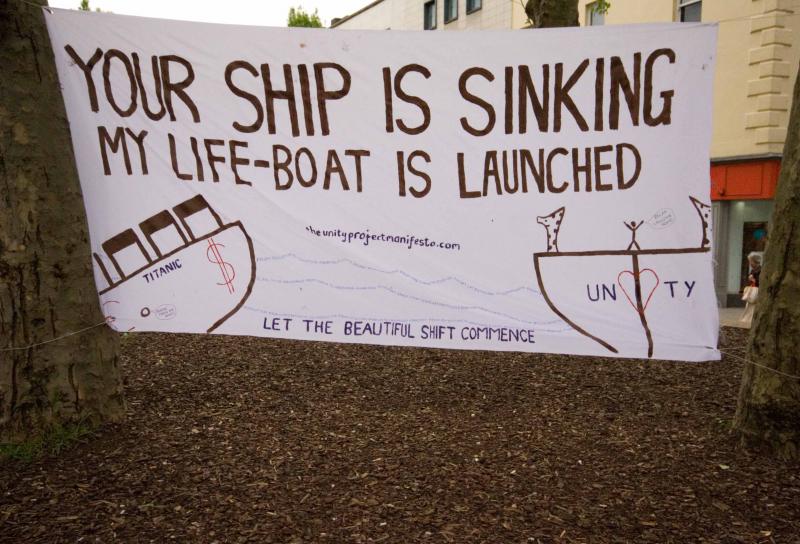 YOUR SHIP IS SINKING
MY LIFE-BOAT IS LAUNCHED
theunityprojectmanifesto.com
TITANIC
$
UN TY
LET THE BEAUTIFUL SHIFT COMMENCE